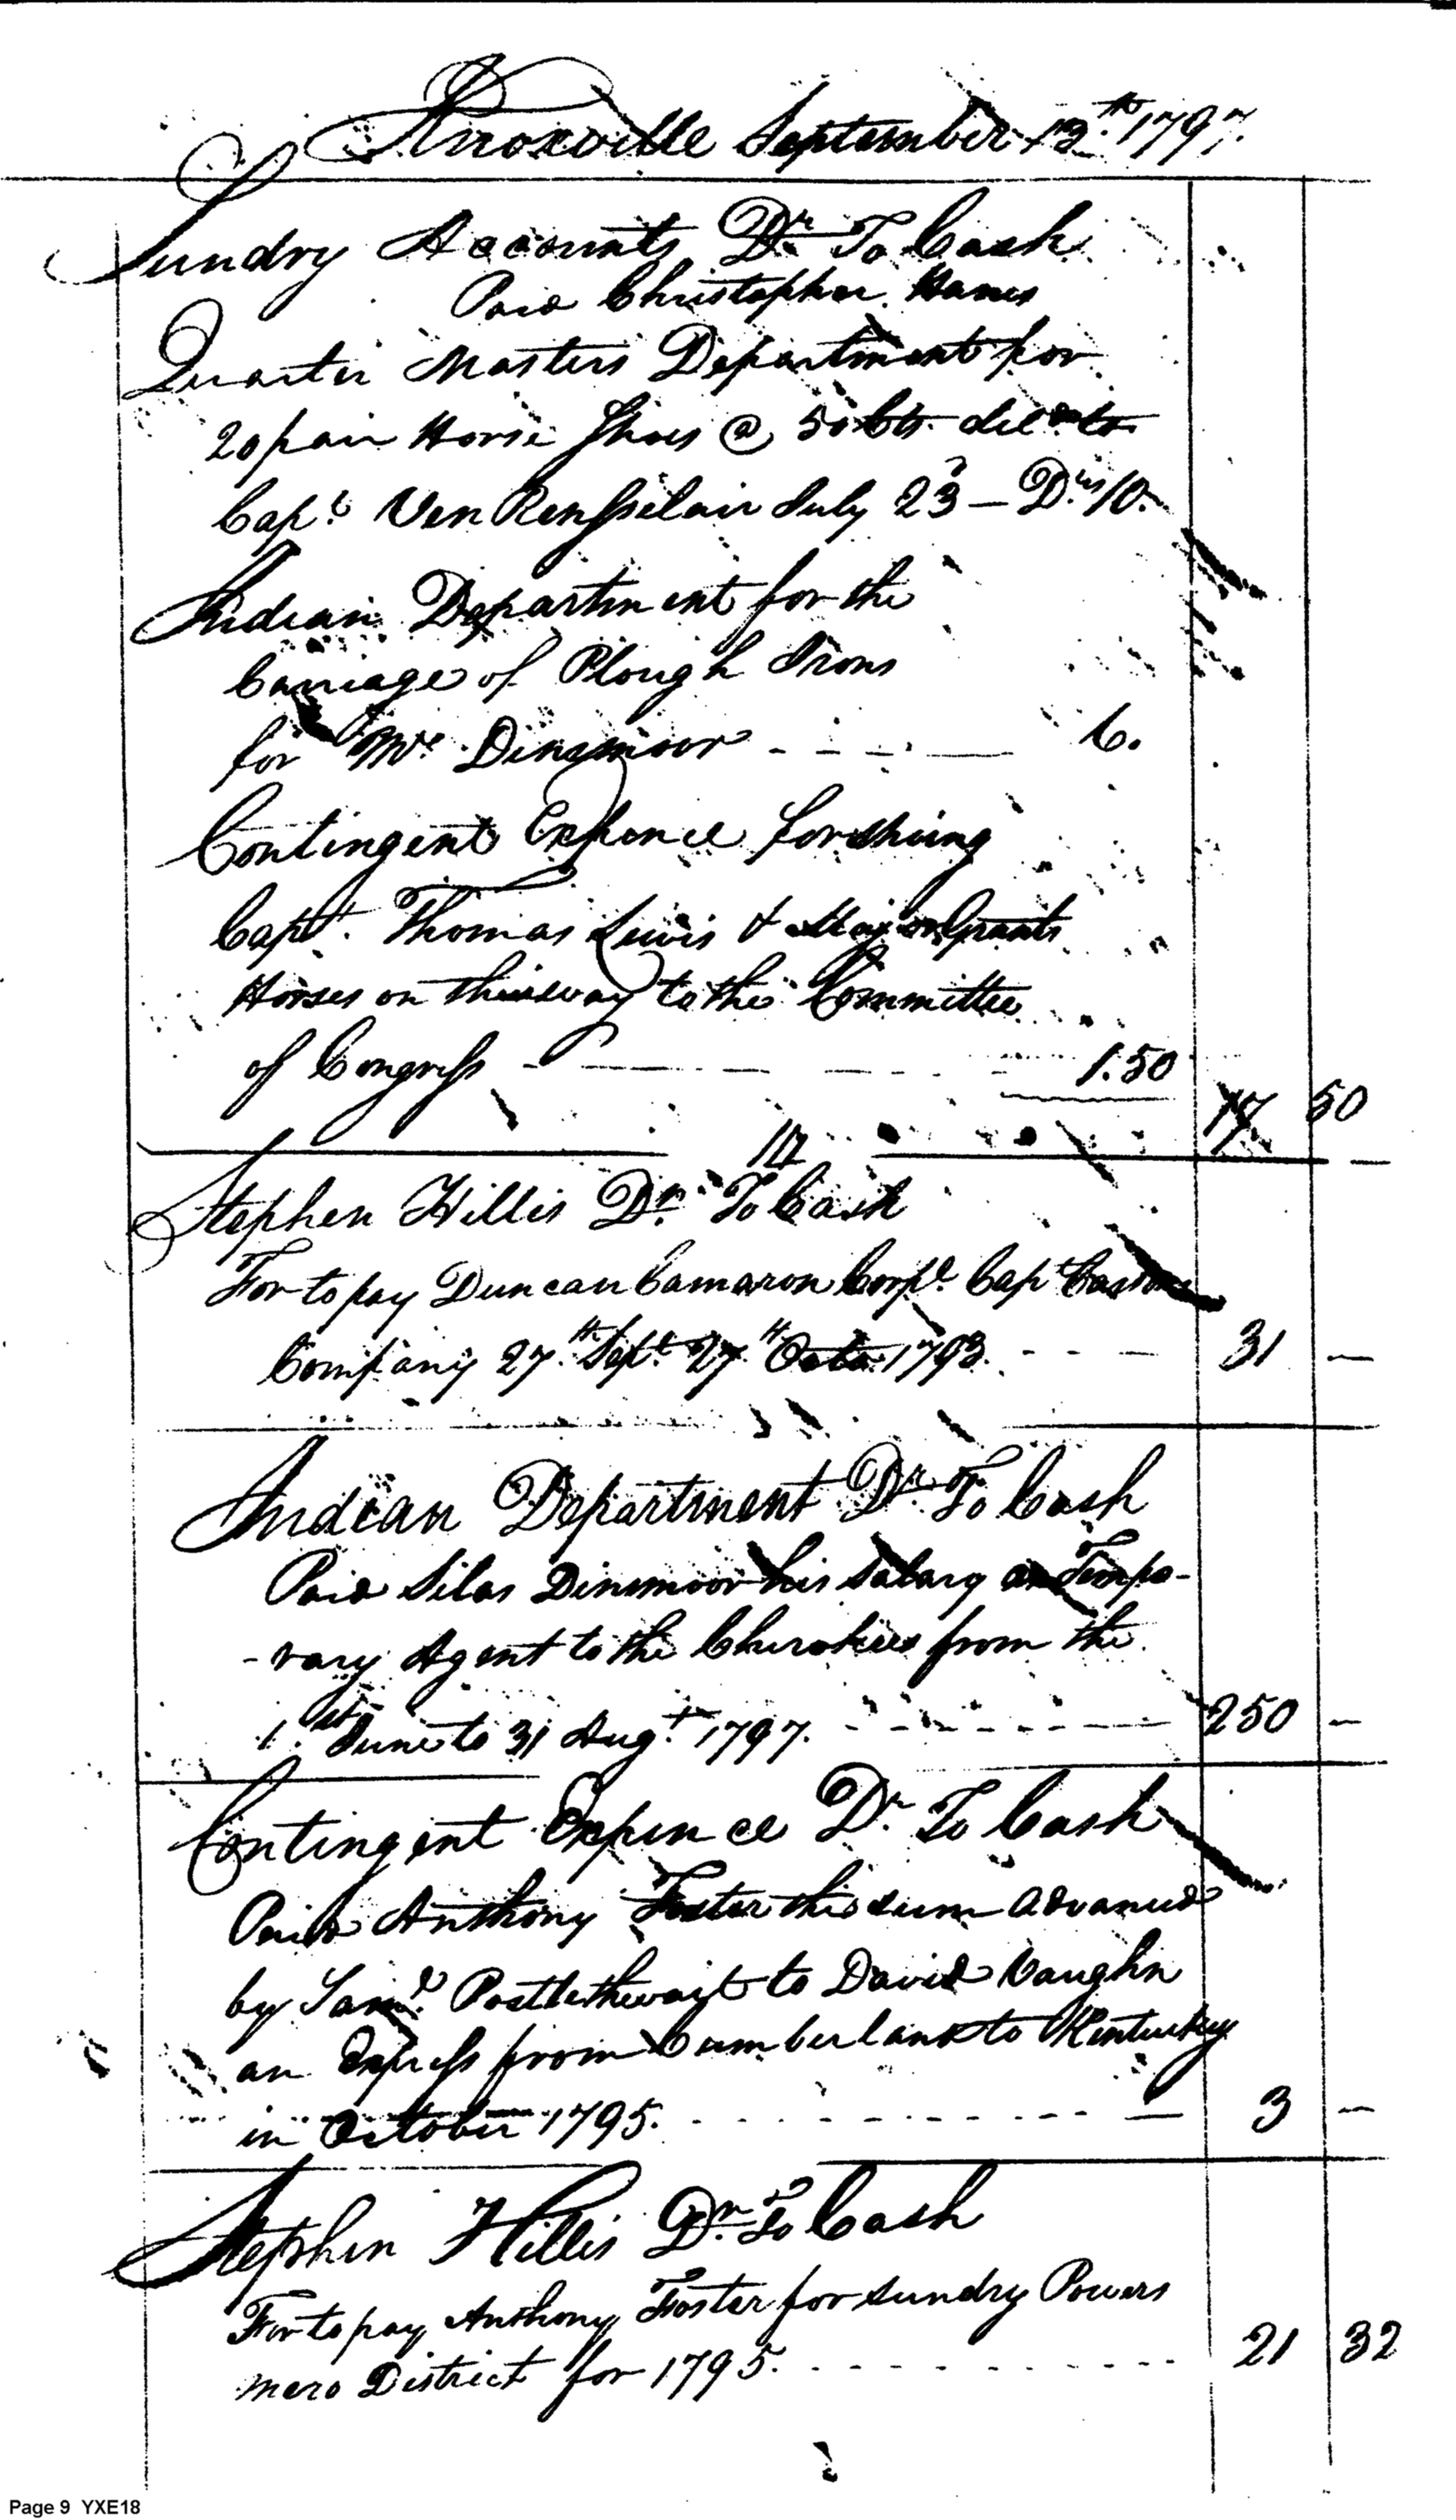 Knoxville September 13th 1797.
Sundry Accounts Dr. To Cash
Paid Christopher
Quarter Masters Department for
20 pair Horse Shoes @ 50 Cts
Capt. Van Rensselair July 23 — Drs 10.
Indian Department for the
Carriage of Plough Irons
for Mr. Dinsmoor - - - - 6.
Contingent Expence for shoing
Capt. Thomas Lewis &
Horses on their way to the Committee
of Congress - - - - 1.50
17 50
14
Stephen Hillis Dr. To Cash
For to pay Duncan Camaron Corpl. Capt
Company 27th Sept. 27th Octo. 1793. - - - 31 —
Indian Department Dr. To Cash
Paid Silas Dinsmoor his salary as Tempo-
-rary Agent to the Cherokees from the
1st. June to 31 Augt. 1797. - - - - - 250 —
Contingent Expence Dr. To Cash
Paid Anthony Foster the sum advanced
by Saml. Postlethwait to David Vaughn
an Express from Cumberland to Kentucky
in October 1795. - - - - - 3 —
Stephen Hillis Dr. To Cash
For to pay Anthony Foster for sundry Powers
mero District for 1795. - - - - - 21 32
Page 9 YXE18